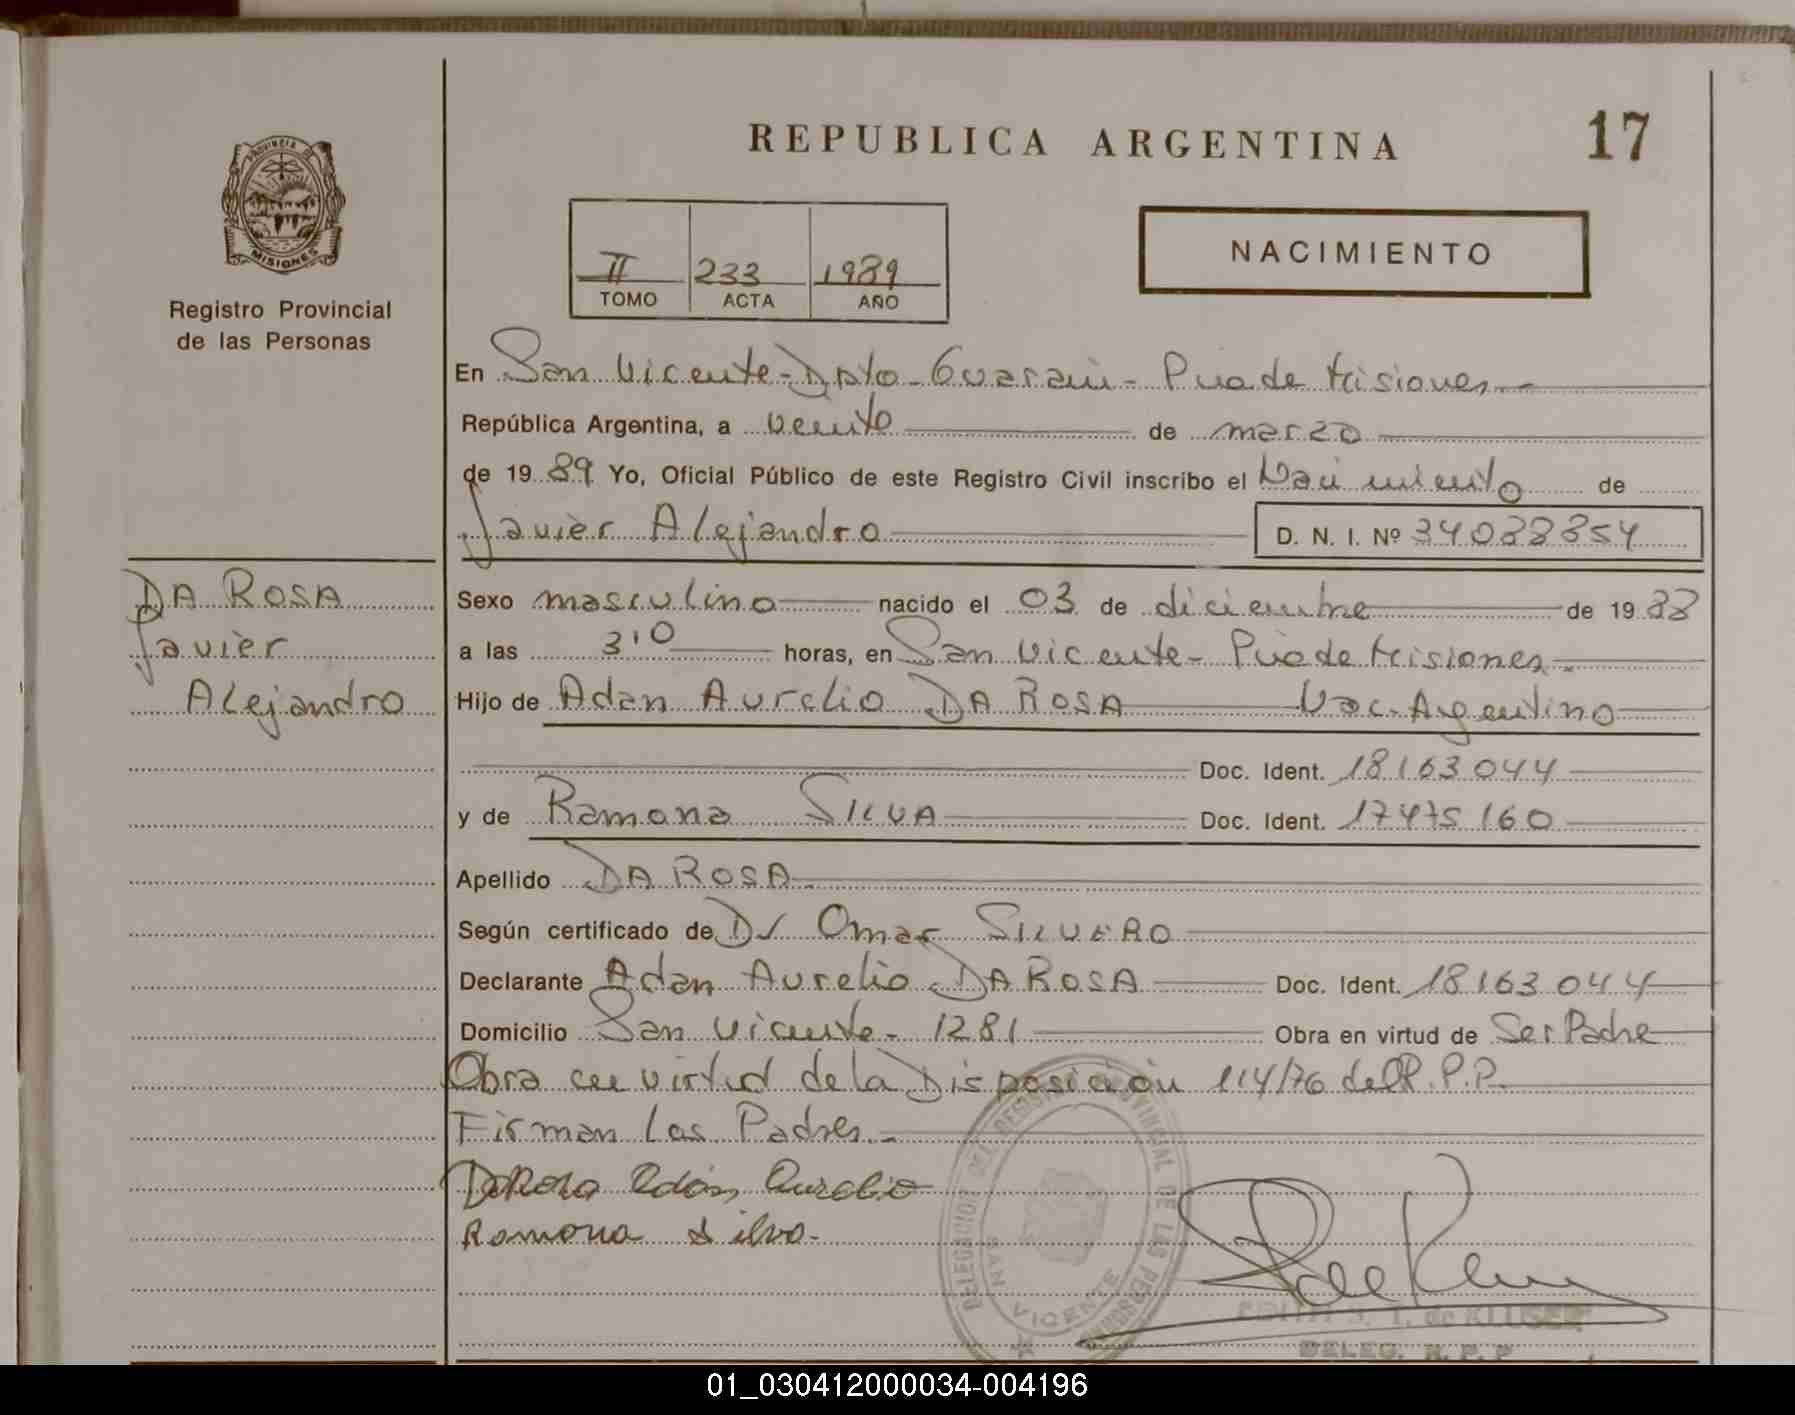 REPUBLICA ARGENTINA
17
PROVINCIA DE
MISIONES
Registro Provincial
de las Personas
II 233 1989
TOMO ACTA AÑO
NACIMIENTO
En San Vicente - Dpto - Guarani - Pvia de Misiones -
República Argentina, a veinte de marzo
de 19 89 Yo, Oficial Público de este Registro Civil inscribo el Nacimiento de
Javier Alejandro D. N. I. Nº 34088854
DA ROSA
Javier
Alejandro
Sexo masculino nacido el 03 de diciembre de 19 88
a las 3'0 horas, en San Vicente - Pvia de Misiones -
Hijo de Adan Aurelio DA ROSA Nac. Argentino
Doc. Ident. 18163044
y de Ramona SILVA Doc. Ident. 17475160
Apellido DA ROSA
Según certificado de Dr Omar SILVERO
Declarante Adan Aurelio DA ROSA Doc. Ident. 18163044
Domicilio San Vicente - 1281 Obra en virtud de Ser Padre
Obra en virtud de la Disposición 114/76 del R.P.P.
Firman Los Padres -
DaRosa Adán Aurelio
Ramona Silva.
DELEGACION DEL REGISTRO PROVINCIAL DE LAS PERSONAS
SAN VICENTE
S. T. de KLUSER
DELEG. R. P. P
01_030412000034-004196